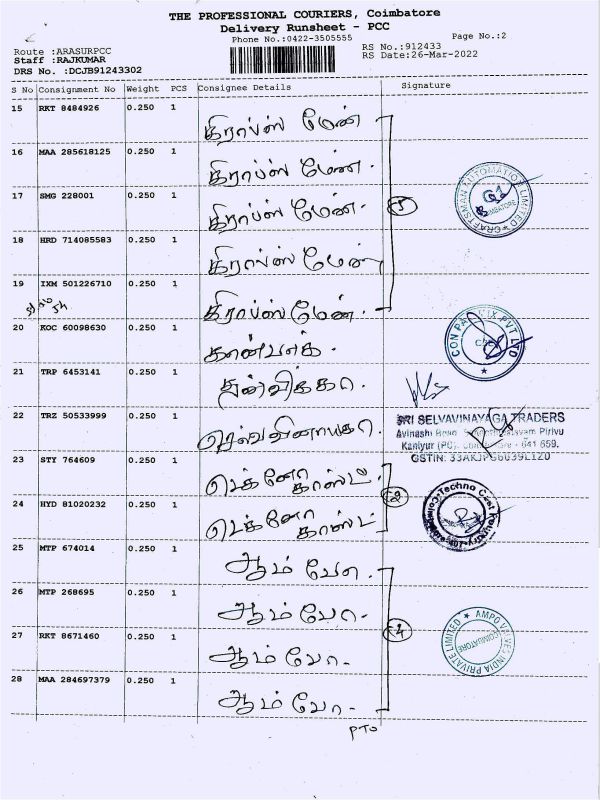 THE PROFESSIONAL COURIERS, Coimbatore
Delivery Runsheet - PCC
Phone No.:0422-3505555
Page No.:2
Route :ARASURPCC
RS No.:912433
Staff :RAJKUMAR
RS Date:26-Mar-2022
DRS No. :DCJB91243302
S No Consignment No Weight PCS Consignee Details Signature
15 RKT 8484926 0.250 1 கிராப்ஸ் மேன்
16 MAA 285618125 0.250 1 கிராப்ஸ் மேன்.
17 SMG 228001 0.250 1 கிராப்ஸ் மேன்.
18 HRD 714085583 0.250 1 கிராப்ஸ் மேன்
19 IXM 501226710 0.250 1 கிராப்ஸ் மேன்.
5
CRAFTSMAN AUTOMATION LIMITED
COIMBATORE
20 KOC 60098630 0.250 1 கான்பாக்.
CON PVT LTD
21 TRP 6453141 0.250 1
22 TRZ 50533999 0.250 1 செல்வவிநாயகா.
SRI SELVAVINAYAGA TRADERS
Avinashi Road, Pirivu
Kaniyur (PO), 641 659.
GSTIN:
23 STY 764609 0.250 1 டெக்னோ காஸ்ட்
24 HYD 81020232 0.250 1 டெக்னோ காஸ்ட்
2
Techno Cast
25 MTP 674014 0.250 1 ஆம் போ.
26 MTP 268695 0.250 1 ஆம் போ.
27 RKT 8671460 0.250 1 ஆம் போ.
28 MAA 284697379 0.250 1 ஆம் போ.
4
AMPO VALVES INDIA PRIVATE LIMITED
COIMBATORE
PTO